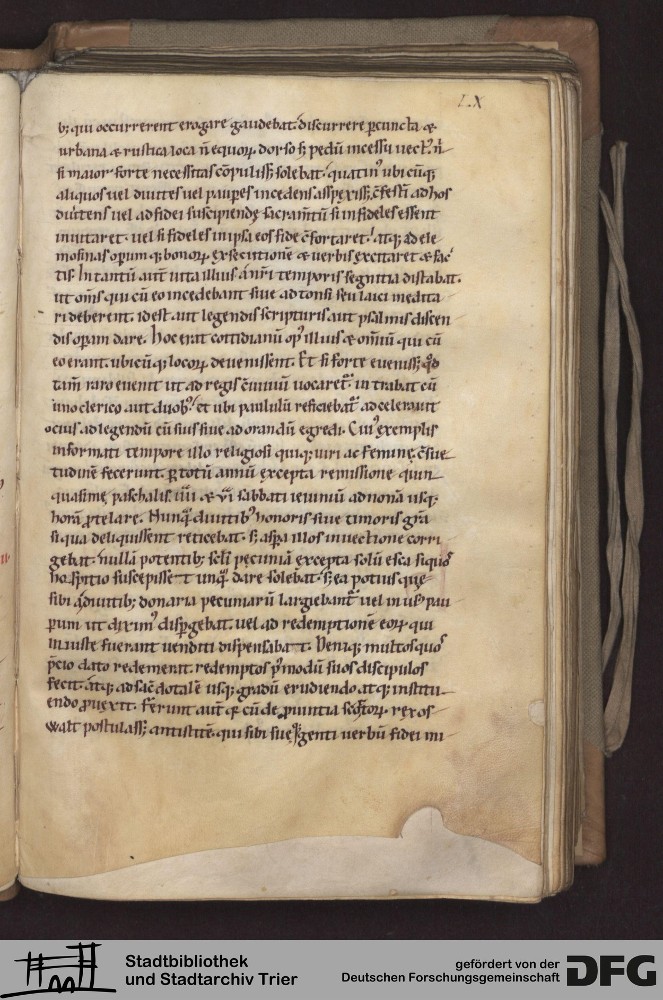 LX
b; qui occurrerent erogare gaudebat. discurrere p cuncta &
urbana & rustica loca n̄ equoꝝ dorso s; pedū incessu uect'. n̄
si maior forte necessitas cōpuliss; solebat. quatin' ubicūq;
aliquos uel diuites uel paupes incedens asspexiss; c̄festī ad hos
diuertens uel ad fidei suscipiendę sacram̄tū si infideles essent
inuitaret. uel si fideles in ipsa eos fide c̄fortaret. atq; ad ele
mosinas operum q; bonoꝝ exsecutionē & uerbis excitaret & fac
tis. In tantū aut̄ uita illius a n̄ri temporis segnitia distabat.
ut om̄s qui cū eo incedebant siue adtonsi seu laici medita
ri deberent. id est aut legendis scripturis aut psalmis discen
dis operam dare. Hoc erat cottidianū op' illius & omīū qui cū
eo erant. ubicūq; locoꝝ deuenissent. Et si forte eueniss; qd̄
tam̄ raro euenit ut ad regis c̄uiuiū uocaret. intrabat cū
uno clerico aut duob; et ubi paululū reficiebat. adcelerauit
ocius ad legendū cū suis siue ad orandū egredi. Cui' exemplis
informati tempore illo religiosi quiq; uiri ac feminę c̄sue
tudinē fecerunt. p totū annū excepta remissione quin
quagsimę paschalis. iiii & vi sabbati ieiuniū ad nonā usq;
horā p̱telare. Nunq̄ diuitib; honoris siue timoris gr̄a
si qua deliquissent reticebat. s; asp̱a illos inuectione corri
gebat. nullā potentib; scl̄i pecuniā excepta solū esca si quos
hospitio suscepisset unq̄ dare solebat. s; ea potius quę
sibi a diuitib; donaria pecuniarū largiebant uel in us' pau
perum ut dixim' disp̱gebat. uel ad redemptionē eoꝝ qui
iniuste fuerant uenditi dispensabat. Deniq; multos quos
p̄cio dato redemerit. redemptos p' modū suos discipulos
fecit. atq; ad sac̄dotalē usq; gradū erudiendo atq; institu
endo puexit. Ferunt aut̄ q; cū de puintia scottoꝝ rex os
walt postulass; antistitē. qui sibi suęq; genti uerbū fidei mi
Stadtbibliothek
und Stadtarchiv Trier
gefördert von der
Deutschen Forschungsgemeinschaft
DFG